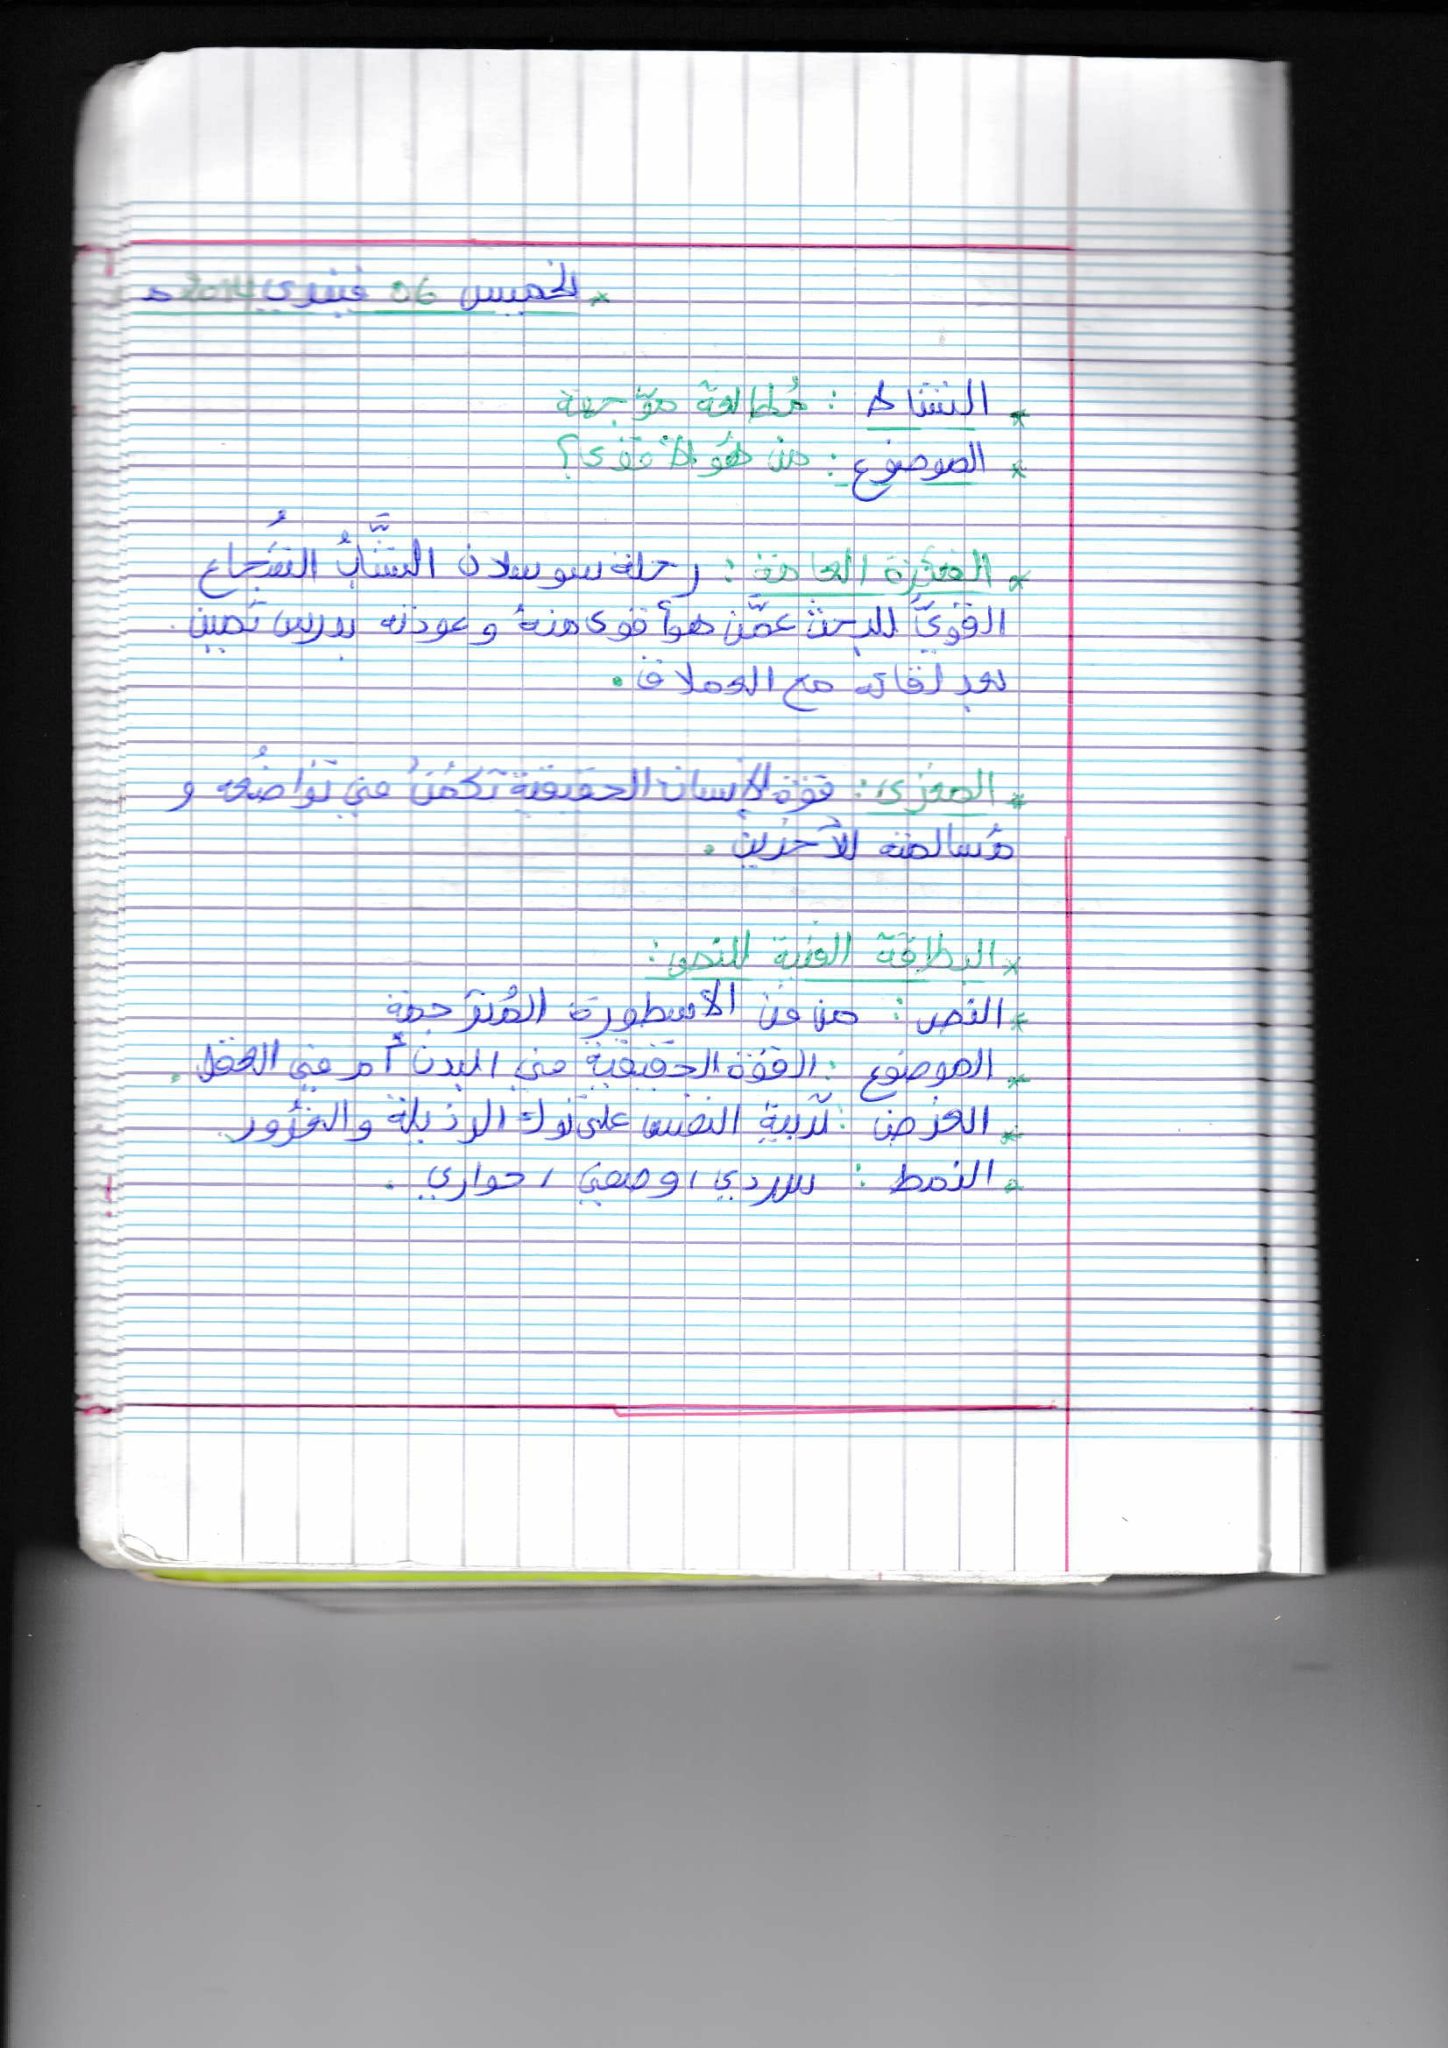 * الخميس 06 فيفري 2014 م
* النشاط : مُطالعة موّجهة
* الموضوع : من هُو الأقوى؟
* الفكرة العامة : رحلة سوسلان الشَّابُّ الشُجاع
القويَّ للبحث عمّن هو أقوى منهُ وعودته بدرس ثمين
بعد لقائه مع العملاق .
* المغزى : قوّة الإنسان الحقيقية تكمُنُ في تواضُعه و
مُسالمته للآخرين .
* البطاقة الفنية للنص :
* النص : من فن الأسطورة المُترجمة
* الموضوع : القوّة الحقيقية في البدن أم في العقل .
* الغرض : تربية النفس على ترك الرذيلة والغُرُور .
* النمط : سردي ، وصفي ، حواري .